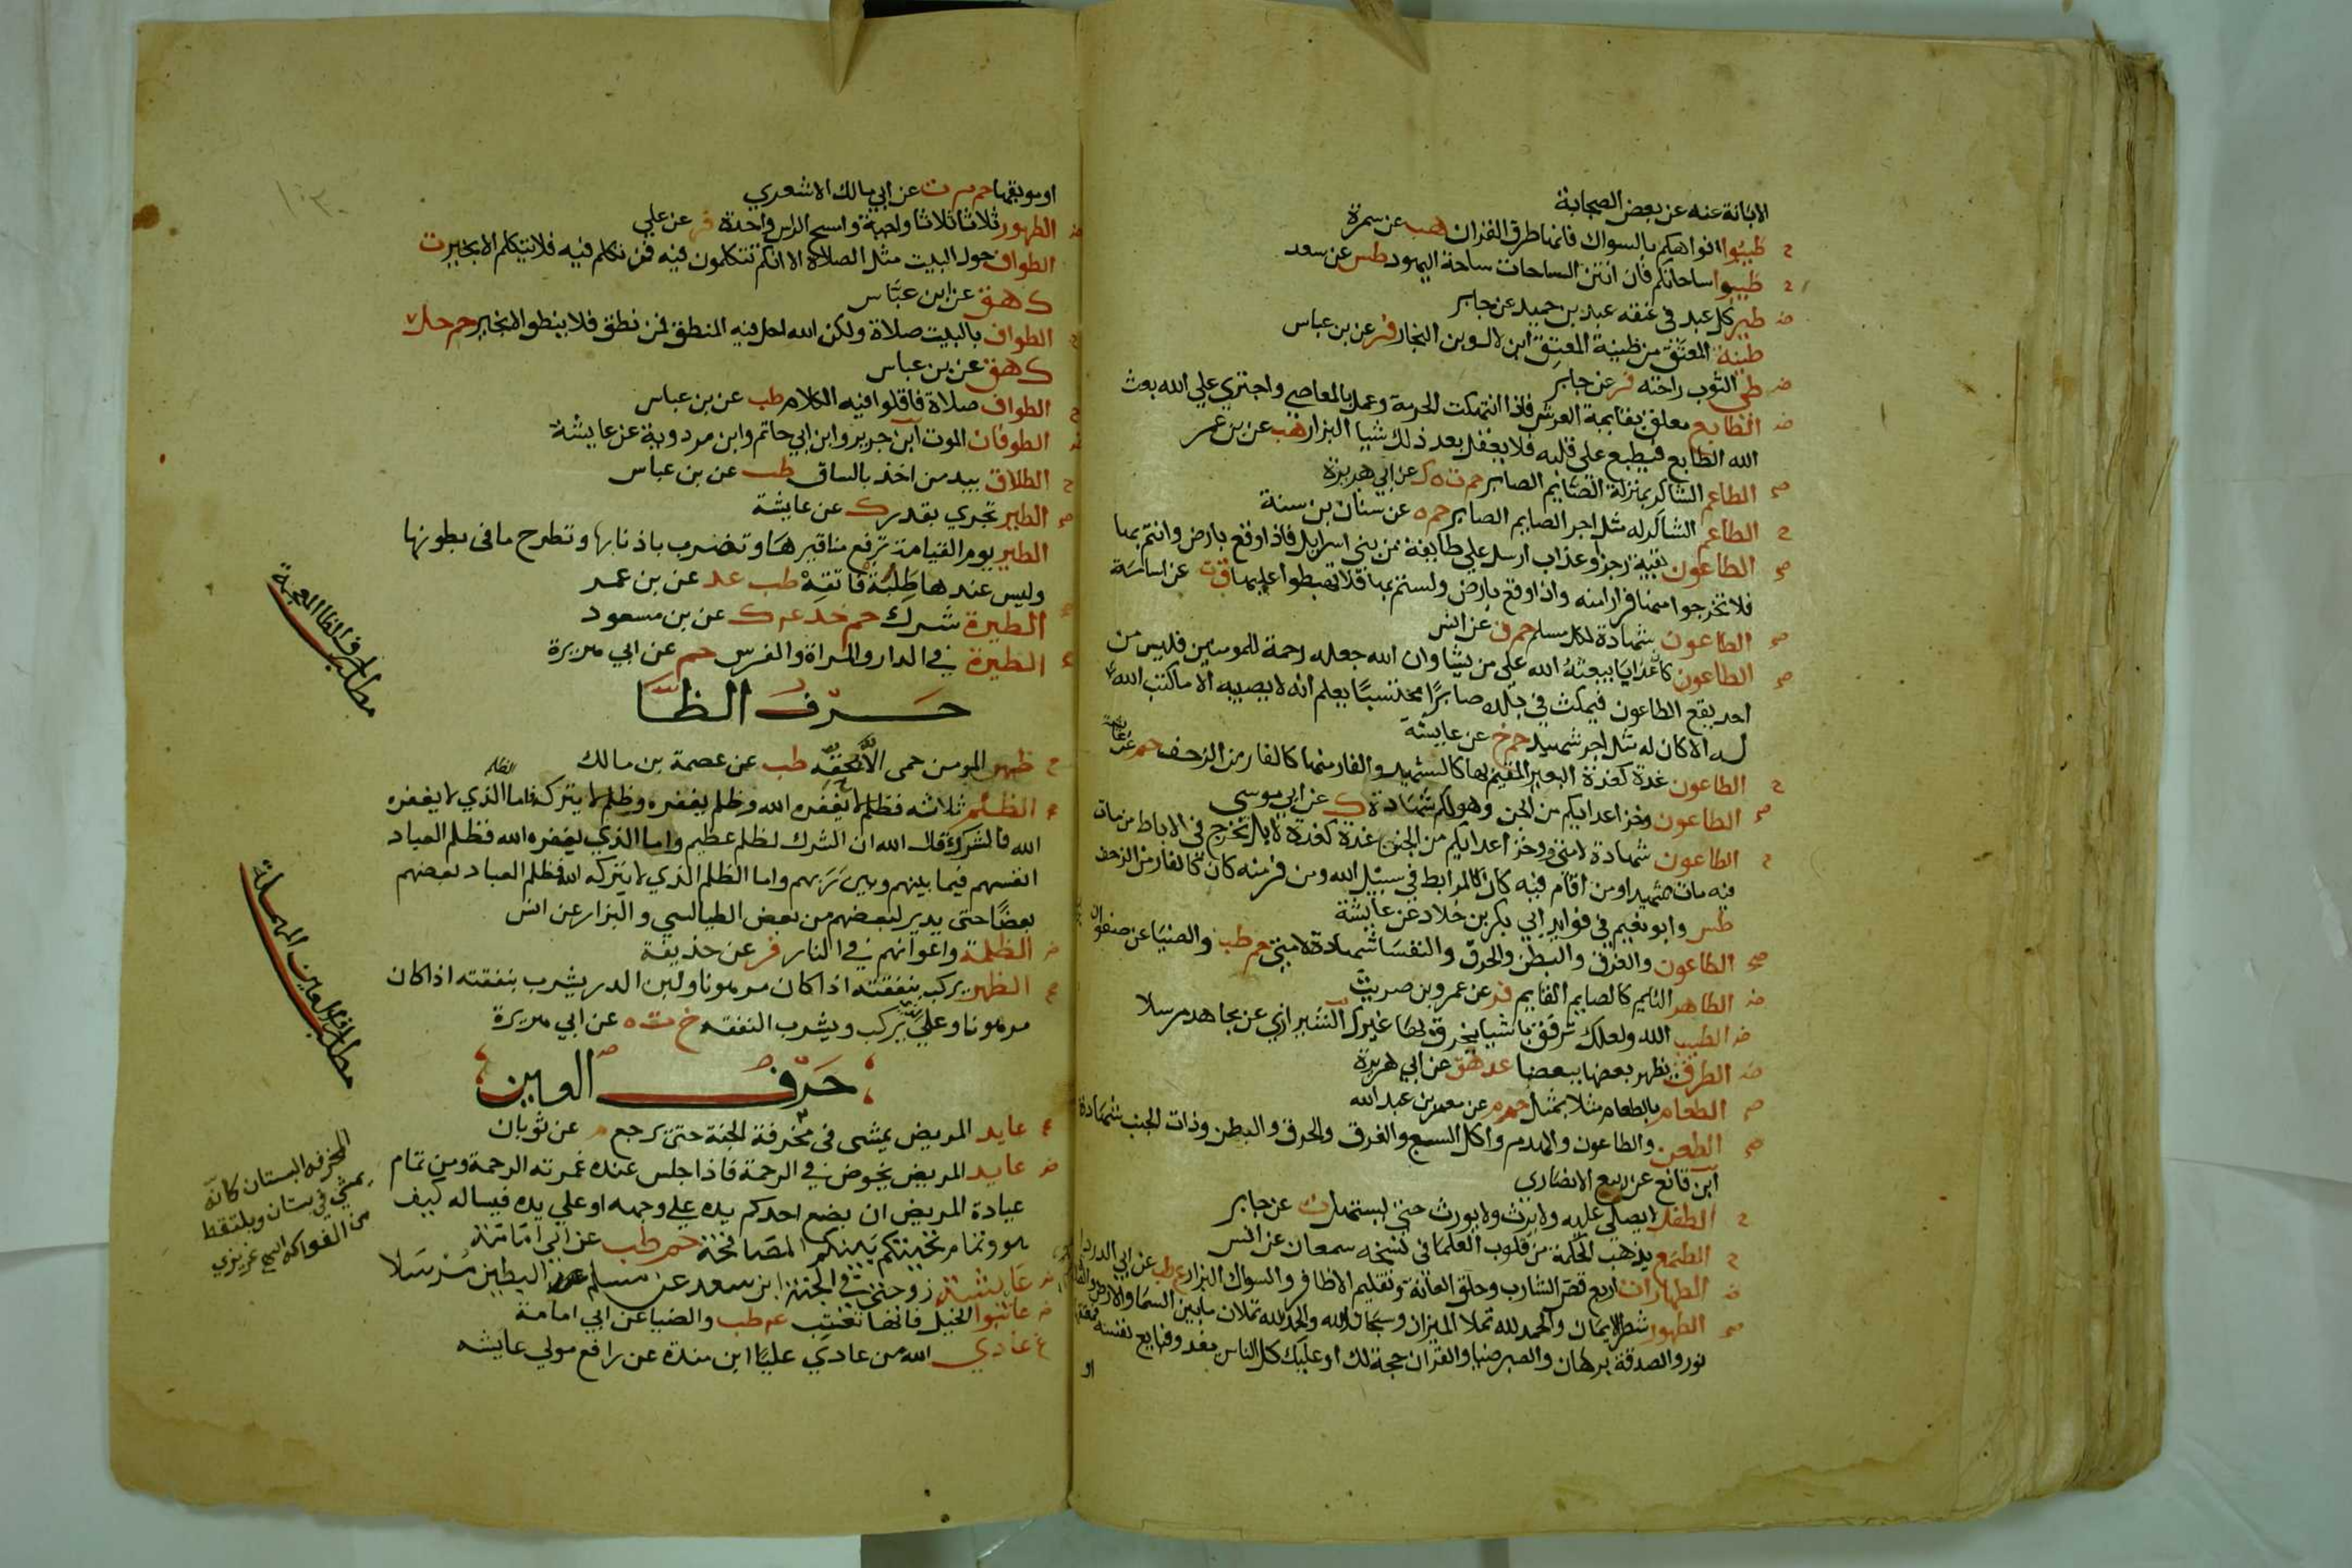 الابانة عنه عن بعض الصحابة
ح طيبوا افواهكم بالسواك فانها طرق القران هب عن سمرة
ح طيبوا ساحاتكم فان انتن الساحات ساحة اليهود طس عن سعد
ض طير كل عبد في عنقه عبد بن حميد عن جابر
طينة المعتق من طينة المعتق ابن لال وبن النجار فر عن بن عباس
ض طي الثوب راحته فر عن جابر
ض الطابع معلق بقايمة العرش فاذا انتهكت الحرمة وعمل بالمعاصي واجتري علي الله بعث
الله الطابع فيطبع علي قلبه فلا يعقل بعد ذلك شيا البزار هب عن بن عمر
صح الطاعم الشاكر بمنزلة الصايم الصابر حم ت ه ك عن ابي هريرة
ح الطاعم الشاكر له مثل اجر الصايم الصابر حم ه عن سنان بن سنة
صح الطاعون بقية رجز او عذاب ارسل علي طايفة من بني اسرايل فاذا وقع بارض وانتم بها
فلا تخرجوا منها فرارا منه واذا وقع بارض ولستم بها فلا تهبطوا عليها ق ت عن اسامة
صح الطاعون شهادة لكل مسلم حم ق عن انس
صح الطاعون كان عذابا يبعثه الله علي من يشا وان الله جعله رحمة للمومنين فليس من
احد يقع الطاعون فيمكث في بلده صابرا محتسبا يعلم انه لا يصيبه الا ما كتب الله
له الا كان له مثل اجر شهيد حم خ عن عايشة
ح الطاعون غدة كغدة البعير المقيم بها كالشهيد والفار منها كالفار من الزحف حم عن عايشة
صح الطاعون وخز اعدايكم من الجن وهو لكم شهادة ك عن ابي موسي
ح الطاعون شهادة لامتي ووخز اعدايكم من الجن غدة كغدة الابل تخرج في الاباط من مات
فيه مات شهيد او من اقام فيه كان كالمرابط في سبيل الله ومن فر منه كان كالفار من الزحف
طس وابو نعيم في فوايد ابي بكر بن خلاد عن عايشة
صح الطاعون والغرق والبطن والحرق والنفسا شهادة لامتي حم طب والضيا عن صفوان
ض الطاهر النايم كالصايم القايم فر عن عمرو بن حريث
ض الطبيب الله ولعلك ترفق باشيا يخرق بها غيرك الشيرازي عن مجاهد مرسلا
ض الطرق يطهر بعضها بعضا عد هق عن ابي هريرة
صح الطعام بالطعام مثلا بمثل حم م عن معمر بن عبد الله
صح الطعن والطاعون والهدم واكل السبع والغرق والحرق والبطن وذات الجنب شهادة
ابن قانع عن ربيع الانصاري
ح الطفل لا يصلي عليه ولا يرث ولا يورث حتي يستهل ت عن جابر
ح الطمع يذهب الحكمة من قلوب العلما في نسخه سمعان عن انس
ض الطهارات اربع قص الشارب وحلق العانة وتقليم الاظافر والسواك البزار ع طب عن ابي الدردا
صح الطهور شطر الايمان والحمد لله تملا الميزان وسبحان الله والحمد لله تملان ما بين السما والارض والصلاة
نور والصدقة برهان والصبر ضيا والقران حجة لك او عليك كل الناس يغدو فبايع نفسه فمعتقها
او
او موبقها حم م ت عن ابي مالك الاشعري
ض الطهور ثلاثا ثلاثا واجبة ومسح الراس واحدة فر عن علي
الطواف حول البيت مثل الصلاة الا انكم تتكلمون فيه فمن تكلم فيه فلا يتكلم الا بخير ت
ك هق عن ابن عباس
ح الطواف بالبيت صلاة ولكن الله احل فيه المنطق فمن نطق فلا ينطق الا بخير حم حل
ك هق عن بن عباس
ح الطواف صلاة فاقلوا فيه الكلام طب عن بن عباس
ض الطوفان الموت ابن جرير وابن ابي حاتم وابن مردوية عن عايشة
ح الطلاق بيد من اخذ بالساق طب عن بن عباس
صح الطير تجري بقدر ك عن عايشة
الطير يوم القيامة ترفع مناقيرها وتضرب باذنابها وتطرح ما في بطونها
وليس عندها طلبة فاتقه طب عد عن بن عمر
الطيرة شرك حم خد عه ك عن بن مسعود
الطيرة في الدار والمراة والفرس حم عن ابي هريرة
مطلب حرف الظا المعجمة
حرف الظا
ح ظهر المومن حمى الا بحقه طب عن عصمة بن مالك
الظلم ثلاثه فظلم لا يغفره الله وظلم يغفره وظلم لا يتركه فاما الظلم الذي لا يغفره
الله فالشرك قال الله ان الشرك لظلم عظيم واما الذي يغفره الله فظلم العباد
انفسهم فيما بينهم وبين ربهم واما الظلم الذي لا يتركه الله فظلم العباد بعضهم
بعضا حتى يدير لبعضهم من بعض الطيالسي والبزار عن انس
ض الظلمة واعوانهم في النار فر عن حذيفة
صح الظهر يركب بنفقته اذا كان مرهونا ولبن الدر يشرب بنفقته اذا كان
مرهونا وعلي الذي يركب ويشرب النفقه خ ت ه عن ابي هريرة
مطلب حرف العين المهملة
حرف العين
عايد المريض يمشي في مخرفة الجنة حتي يرجع م عن ثوبان
ض عايد المريض يخوض في الرحمة فاذا جلس عنده غمرته الرحمة ومن تمام
عيادة المريض ان يضع احدكم يده علي وجهه او علي يده فيساله كيف
هو وتمام تحيتكم بينكم المصافحة حم طب عن ابي امامة
المخرفه البستان كانه
يمشي في بستان ويلتقط
من الفواكه اهـ عزيزي
ض عايشة زوجتي في الجنة ابن سعد عن مسلم البطين مرسلا
ض عاتبوا الخيل فانها تعتب عه طب والضيا عن ابي امامة
عادي الله من عادي عليا ابن مندة عن رافع مولي عايشه